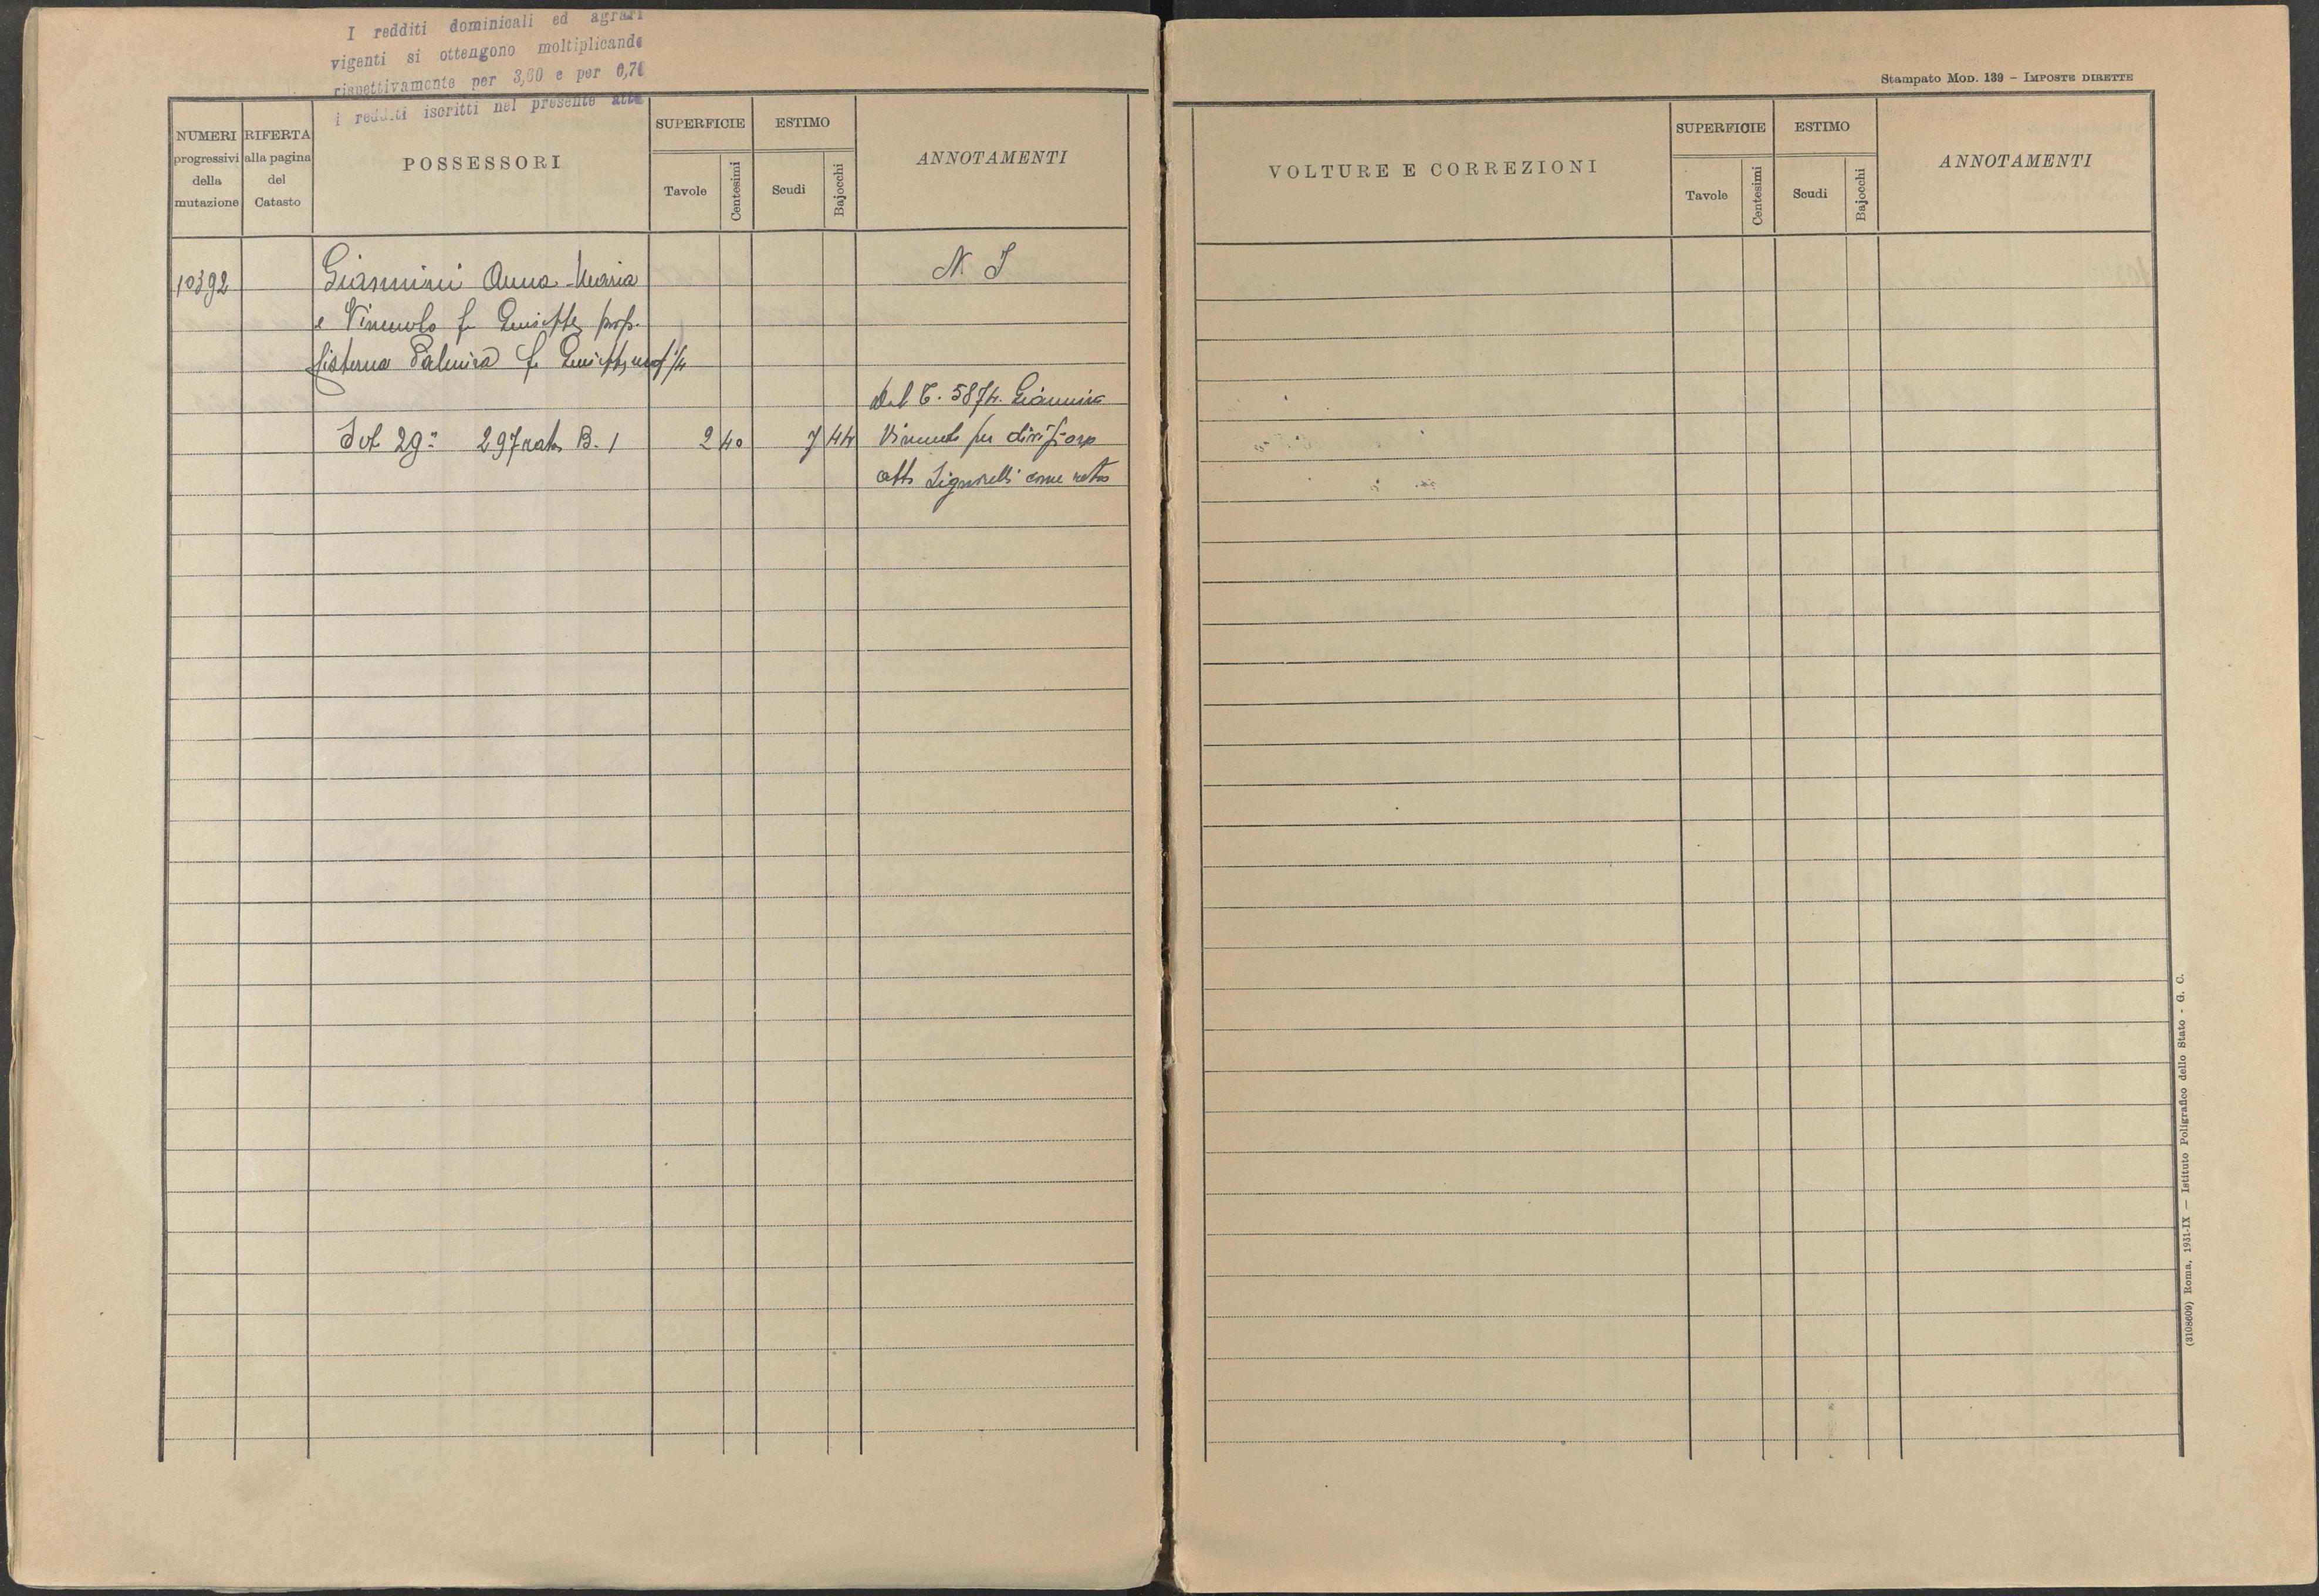 I redditi dominicali ed agrari
vigenti si ottengono moltiplicando
rispettivamente per 3,60 e per 0,70
i redditi iscritti nel presente atto
NUMERI progressivi della mutazione
RIFERTA alla pagina del Catasto
POSSESSORI
SUPERFICIE
Tavole
Centesimi
ESTIMO
Scudi
Bajocchi
ANNOTAMENTI
10392
Giannini Anna Maria
N. I
e Vincenzo fu Giuseppe prop.
Cisterna Palmira fu Giuseppe usuf 1/4
Dal C. 5874. Giannini
Sot 29ª 297 rata B. 1 2 40 7 44
Vincenzo per divisione
atto Signorelli come retro
Stampato MOD. 139 – IMPOSTE DIRETTE
VOLTURE E CORREZIONI
SUPERFICIE
Tavole
Centesimi
ESTIMO
Scudi
Bajocchi
ANNOTAMENTI
(3108609) Roma, 1931-IX — Istituto Poligrafico dello Stato - G. C.